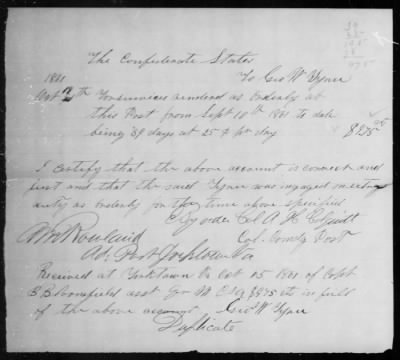 39
25
195
78
975
The Confederate States
1861 To Geo W Tyner
Oct 2th For services rendered as Orderly at
this Post from Sept 10th 1861 to date
being 39 days at 25 ¢ pr day
I certify that the above account is correct and
just and that the said Tyner was ingaged
duty as Orderly for the time above specified
By order Col A. H. Colquitt
Col. Comdg Post
Ad. Post Yorktown Va
Received at Yorktown Va Oct 15 1861 of Capt
B. Bloomfield asst Qr M C S A in full
of the above account Geo W Tyner
Duplicate